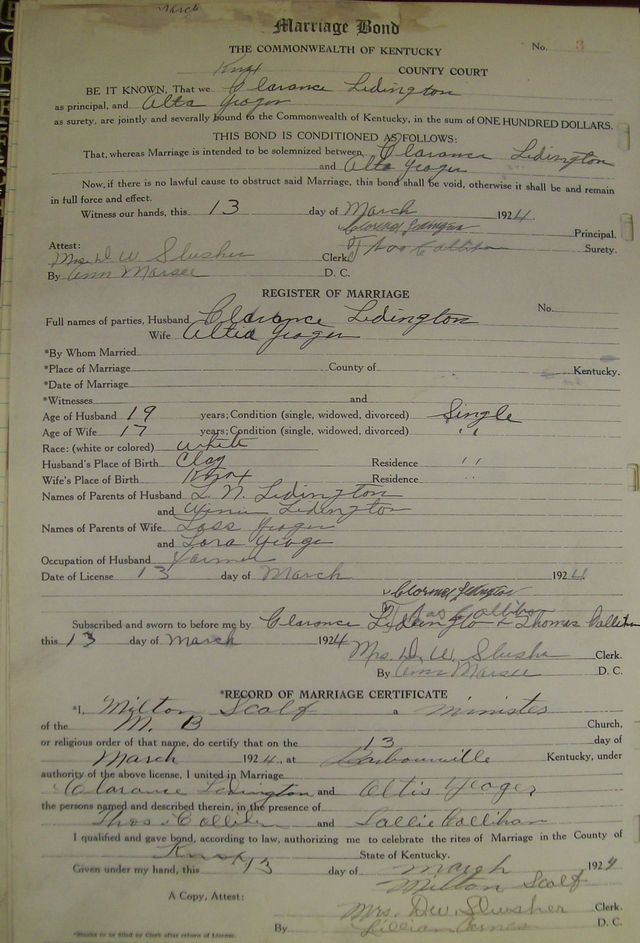 March
Marriage Bond
THE COMMONWEALTH OF KENTUCKY No. 3
Knox COUNTY COURT
BE IT KNOWN, That we Clarance Ledington
as principal, and Alta Yeager
as surety, are jointly and severally bound to the Commonwealth of Kentucky, in the sum of ONE HUNDRED DOLLARS.
THIS BOND IS CONDITIONED AS FOLLOWS:
That, whereas Marriage is intended to be solemnized between Clarance Ledington
and Alta Yeager
Now, if there is no lawful cause to obstruct said Marriage, this bond shall be void, otherwise it shall be and remain
in full force and effect.
Witness our hands, this 13 day of March 1924
Principal.
Attest: Thos Callihan Surety.
Mrs. D. W. Slusher Clerk
By Ann Marsee D. C.
REGISTER OF MARRIAGE
No.
Full names of parties, Husband Clarance Ledington
Wife Altia Yeager
*By Whom Married
*Place of Marriage County of Kentucky.
*Date of Marriage
*Witnesses and
Age of Husband 19 years; Condition (single, widowed, divorced) Single
Age of Wife 17 years; Condition (single, widowed, divorced) ''
Race: (white or colored) White
Husband's Place of Birth Clay Residence ''
Wife's Place of Birth Knox Residence ''
Names of Parents of Husband L. N. Ledington
and Ledington
Names of Parents of Wife Yeager
and Lora Yeager
Occupation of Husband Farmer
Date of License 13 day of March 1924
Subscribed and sworn to before me by Clarance Ledington & Thomas Callihan
this 13 day of March 1924
Mrs. D. W. Slusher Clerk.
By Ann Marsee D. C.
*RECORD OF MARRIAGE CERTIFICATE
*I, Milton Scalf a minister
of the M. B Church,
or religious order of that name, do certify that on the 13 day of
March 1924, at Barbourville Kentucky, under
authority of the above license, I united in Marriage
Clarance Ledington and Altis Yeager
the persons named and described therein, in the presence of
Thos Callihan and Sallie Callihan
I qualified and gave bond, according to law, authorizing me to celebrate the rites of Marriage in the County of
Knox State of Kentucky.
Given under my hand, this 13 day of March 1924
Milton Scalf
A Copy, Attest: Mrs. Dew Slusher Clerk.
By Lillian D. C.
*Blanks to be filled by Clerk after return of License.